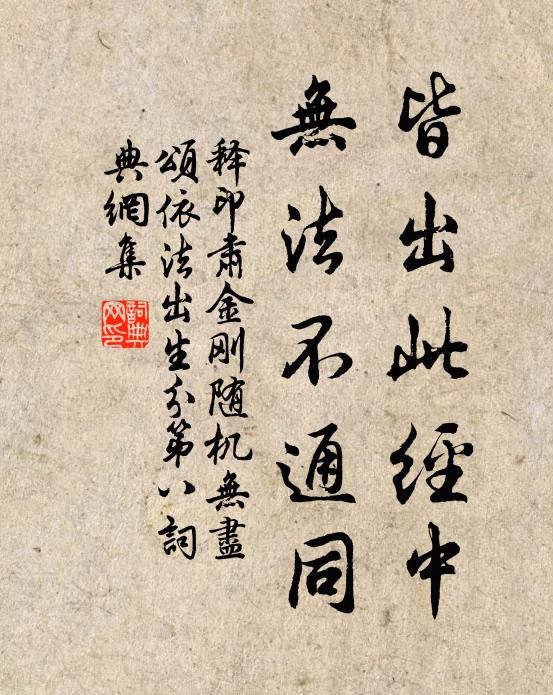 皆出此經中
無法不通同
释印肃金刚随机無盡
頌依法出生分第八詞
典網集
詞典网印